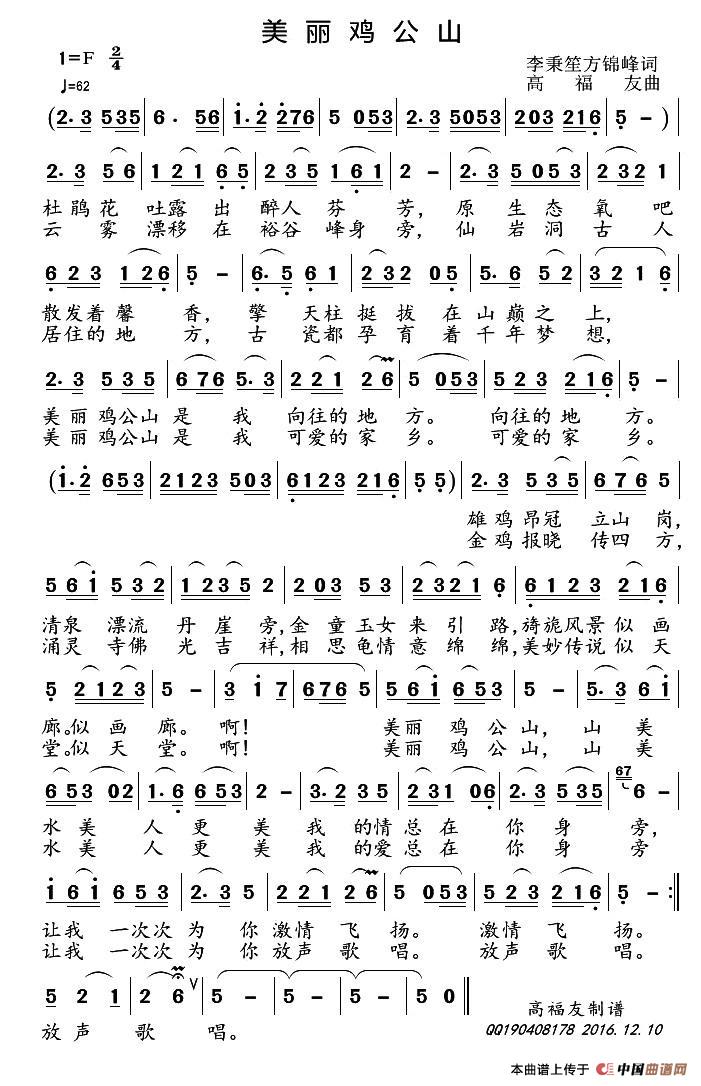 美丽鸡公山
1=F 2/4
♩=62
李秉笙方锦峰词
高福友曲
(2·3 535 | 6· 56 | 1·2 276 | 5 053 | 2·3 5053 | 203 216 | 5 - )
2·3 56 | 121 65 | 235 161 | 2 - | 2·3 5053 | 2321
杜鹃花 吐露 出 醉人 芬 芳, 原 生 态 氧 吧
云 雾 漂移 在 裕谷 峰身 旁, 仙 岩 洞 古 人
623 126 | 5 - | 6·5 61 | 232 05 | 5·6 52 | 3216
散发着馨 香, 擎 天柱 挺 拔 在 山 巅 之 上,
居住的地 方, 古 瓷都 孕 育 着 千 年 梦 想,
2·3 535 | 676 5·3 | 221 26 | 5 053 | 523 216 | 5 -
美丽鸡公山 是 我 向往的 地 方。 向往的 地 方。
美丽鸡公山 是 我 可爱的 家 乡。 可爱的 家 乡。
(1·2 653 | 2123 503 | 6123 216 | 5 5) | 2·3 535 | 676 5
雄鸡昂冠 立山 岗,
金鸡报晓 传四 方,
561 532 | 1235 2 | 203 53 | 2321 6 | 6123 216
清泉 漂流 丹崖 旁,金 童玉女 来 引 路,旖旎风景 似 画
涌灵 寺佛 光吉 祥,相 思龟情 意 绵 绵,美妙传说 似 天
5 2123 | 5 - | 3 17 | 676 5 | 561 653 | 5 - | 5·3 61
廊。似 画 廊。 啊! 美丽 鸡 公 山, 山 美
堂。似 天 堂。 啊! 美丽 鸡 公 山, 山 美
653 02 | 1·6 653 | 2 - | 3·2 35 | 231 06 | 2·3 535 | 67 6 -
水美 人 更 美 我 的情 总在 你 身 旁,
水美 人 更 美 我 的爱 总在 你 身 旁
161 653 | 2·3 5 | 221 26 | 5 053 | 523 216 | 5 - :‖
让我 一次次 为 你 激情 飞 扬。 激情 飞 扬。
让我 一次次 为 你 放声 歌 唱。 放声 歌 唱。
5 21 | 2 6 V | 5 - | 5 - | 5 - | 5 0 ‖
放声 歌 唱。
高福友制谱
QQ190408178 2016.12.10
本曲谱上传于 中国曲谱网